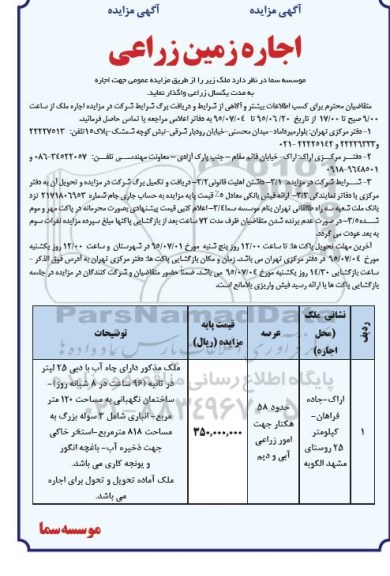 آگهی مزایده
آگهی مزایده
اجاره زمین زراعی
موسسه سما در نظر دارد ملک زیر را از طریق مزایده عمومی جهت اجاره
به مدت یکسال زراعی واگذار نماید.
متقاضیان محترم برای کسب اطلاعات بیشتر و آگاهی از شرایط و دریافت برگ شرایط شرکت در مزایده اجاره ملک از ساعت
۹/۰۰ صبح تا ۱۷/۰۰ از تاریخ ۹۵/۰۶/۲۰ تا ۹۵/۰۷/۰۴ به دفاتر اعلامی مراجعه یا تماس حاصل فرمائید.
۱-دفتر مرکزی تهران: بلوارمیرداماد- میدان محسنی-خیابان رودبار شرقی- نبش کوچه تمشک-پلاک۱۵تلفن: ۲۲۲۲۷۵۱۳
و۲۲۲۲۶۳۳۳ و ۲۲۲۲۵۱۴۲ -۰۲۱
۲- دفتر مرکزی اراک: اراک- خیابان قائم مقام – جنب پارک آزادی – معاونت مهندسی تلفن: ۳۴۵۲۲۰۵۷-۰۸۶ و
۰۹۱۸-۶۶۴۸۵۰۱
۳- شرایط شرکت در مزایده: ۳/۱- داشتن اهلیت قانونی۳/۲- دریافت و تکمیل برگ شرکت در مزایده و تحویل آن به دفتر
مرکزی یا دفاتر نمایندگی ۳/۳- ارائه فیش بانکی معادل ۵٪ قیمت پایه مزایده به حساب جاری جام شماره ۲۱۷۱۸۰۶۹۵۳ نزد
بانک ملت شعبه سه راه طالقانی تهران بنام موسسه سما۳/۴-اعلام کتبی قیمت پیشنهادی بصورت محرمانه در پاکت مهر و موم
شده۳/۵- در صورت عدم برنده شدن متقاضیان ظرف مدت ۷۲ ساعت بعد از بازگشایی پاکتها مبلغ سپرده مزایده نفرات سوم
به بعد عودت می گردد.
آخرین مهلت تحویل پاکت ها: تا ساعت ۱۲/۰۰ روز پنج شنبه مورخ ۹۵/۰۷/۰۱ در شهرستان و ساعت ۱۲/۰۰ روز یکشنبه
مورخ ۹۵/۰۷/۰۴ در دفتر مرکزی تهران می باشد. زمان و مکان بازگشایی پاکت ها: دفتر مرکزی تهران به آدرس فوق الذکر –
ساعت بازگشایی ۱۴/۳۰ روز یکشنبه مورخ ۹۵/۰۷/۰۴ می باشد. ضمناً حضور متقاضیان و شرکت کنندگان در مزایده در جلسه
بازگشایی پاکت ها با ارائه رسید فیش واریزی بلامانع است.
ردیف
نشانی ملک
(محل
اجاره)
عرصه
قیمت پایه
مزایده (ریال)
توضیحات
۱
اراک-جاده
فراهان-
کیلومتر
۲۵ روستای
مشهد الکوبه
حدود ۵۸
هکتار جهت
امور زراعی
آبی و دیم
۳۵۰,۰۰۰,۰۰۰
ملک مذکور دارای چاه آب با دبی ۲۵ لیتر
در ثانیه (۹۶ ساعت در ۸ شبانه روز)-
ساختمان نگهبانی به مساحت ۱۲۰ متر
مربع- انباری شامل ۳ سوله بزرگ به
مساحت ۸۱۸ مترمربع-استخر خاکی
جهت ذخیره آب- باغچه انگور
و یونجه کاری می باشد.
ملک آماده تحویل و تحول برای اجاره
می باشد.
موسسه سما